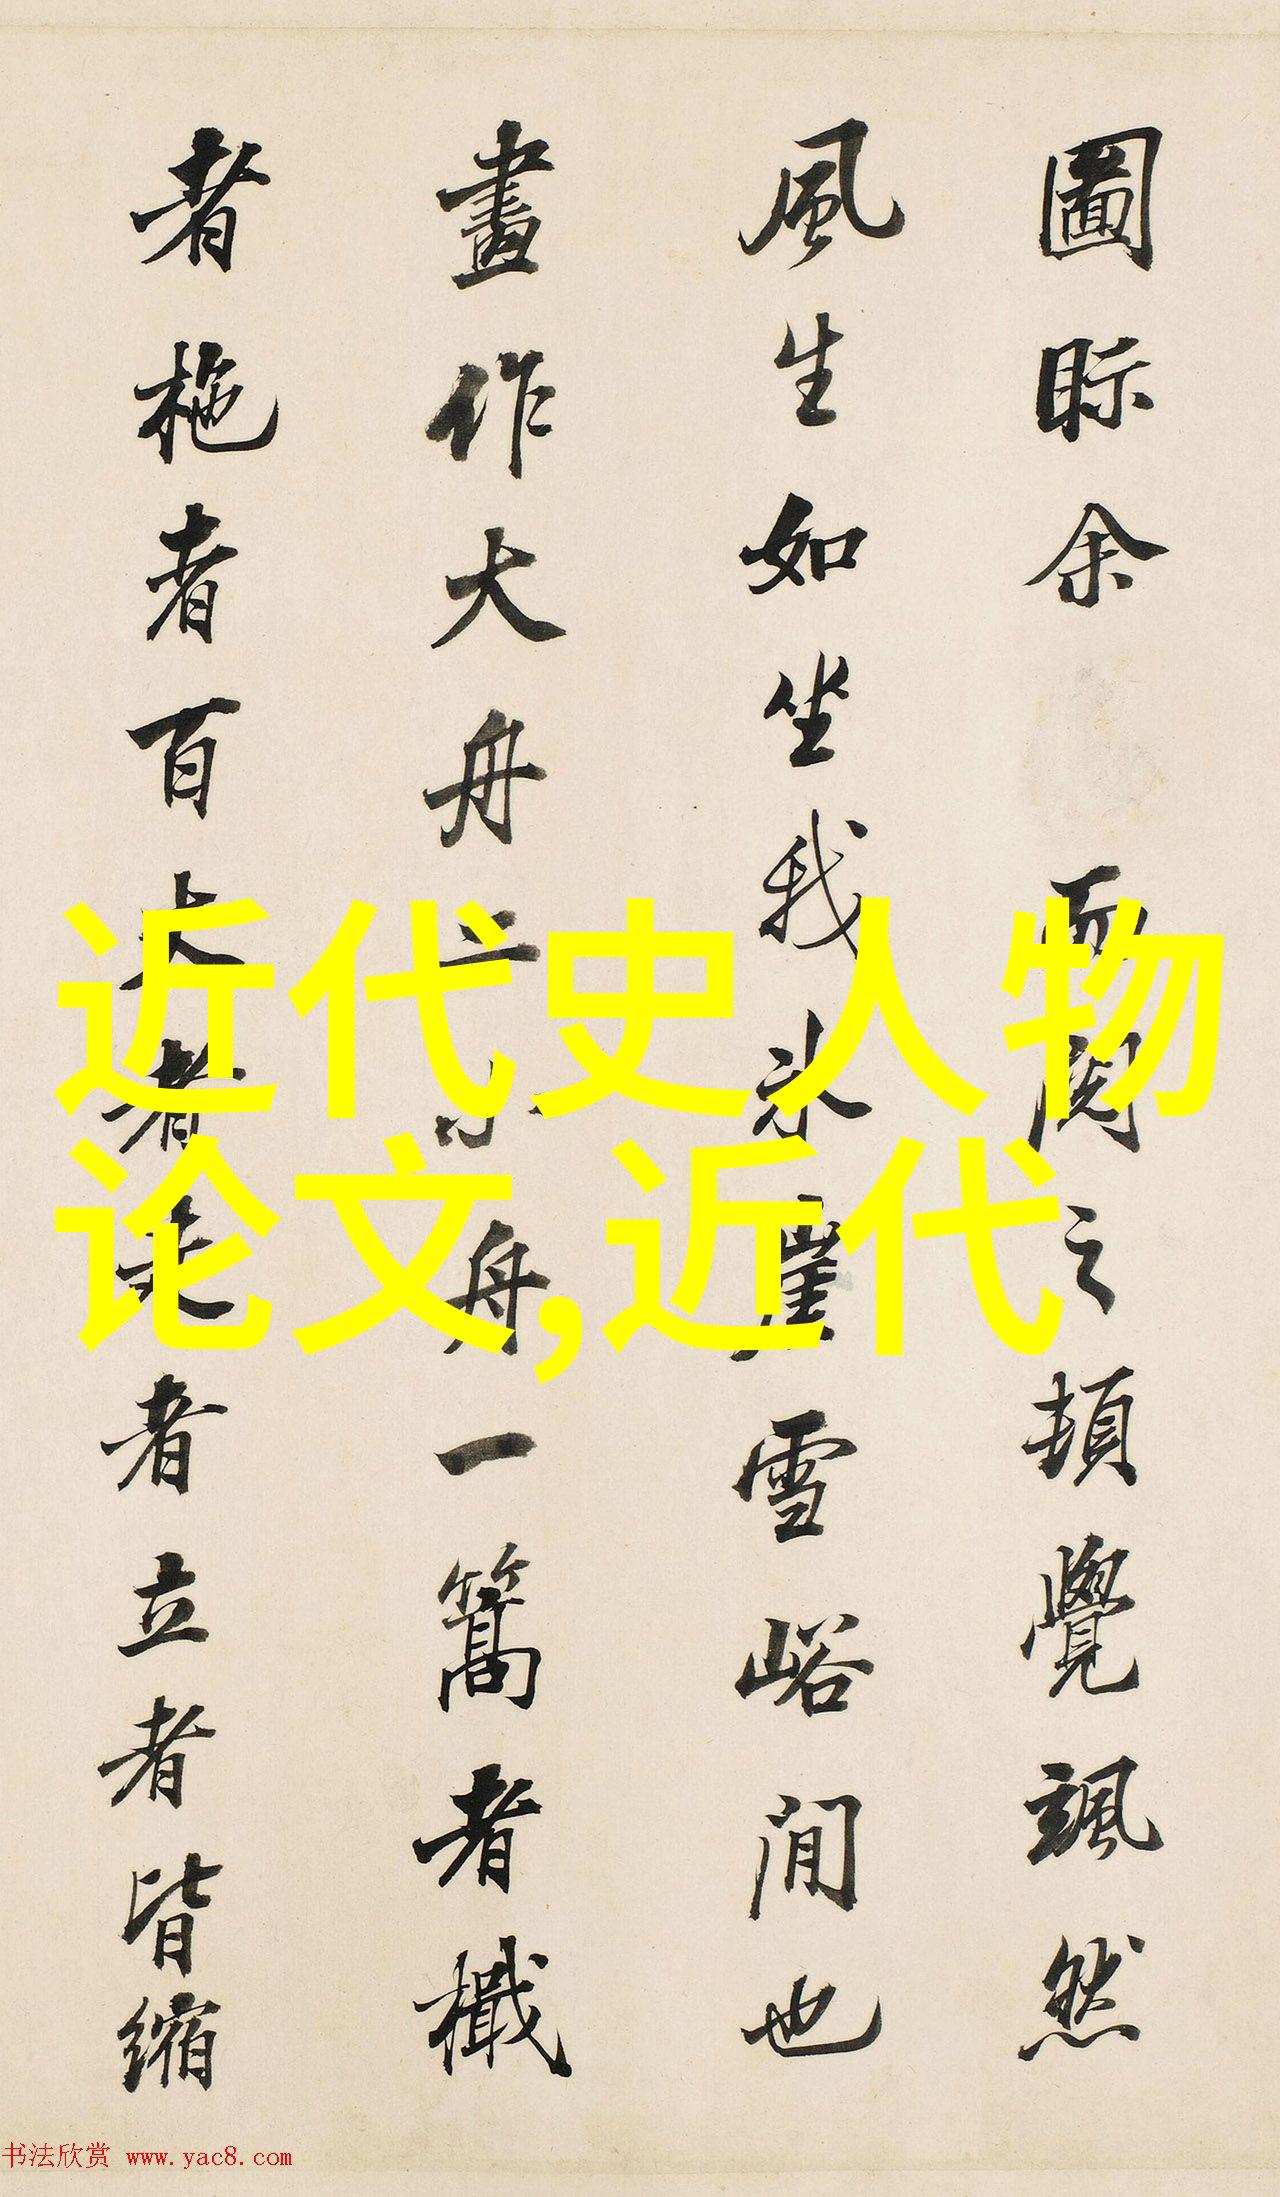 圖眎余而閱之頓覺颯然
風生如坐我氷崖雪峪間也
畫作大舟二小舟一篙者檝
者柂者百丈者走者立者皆縮
近代史人物
论文,近代
书法欣赏 www.yac8.com